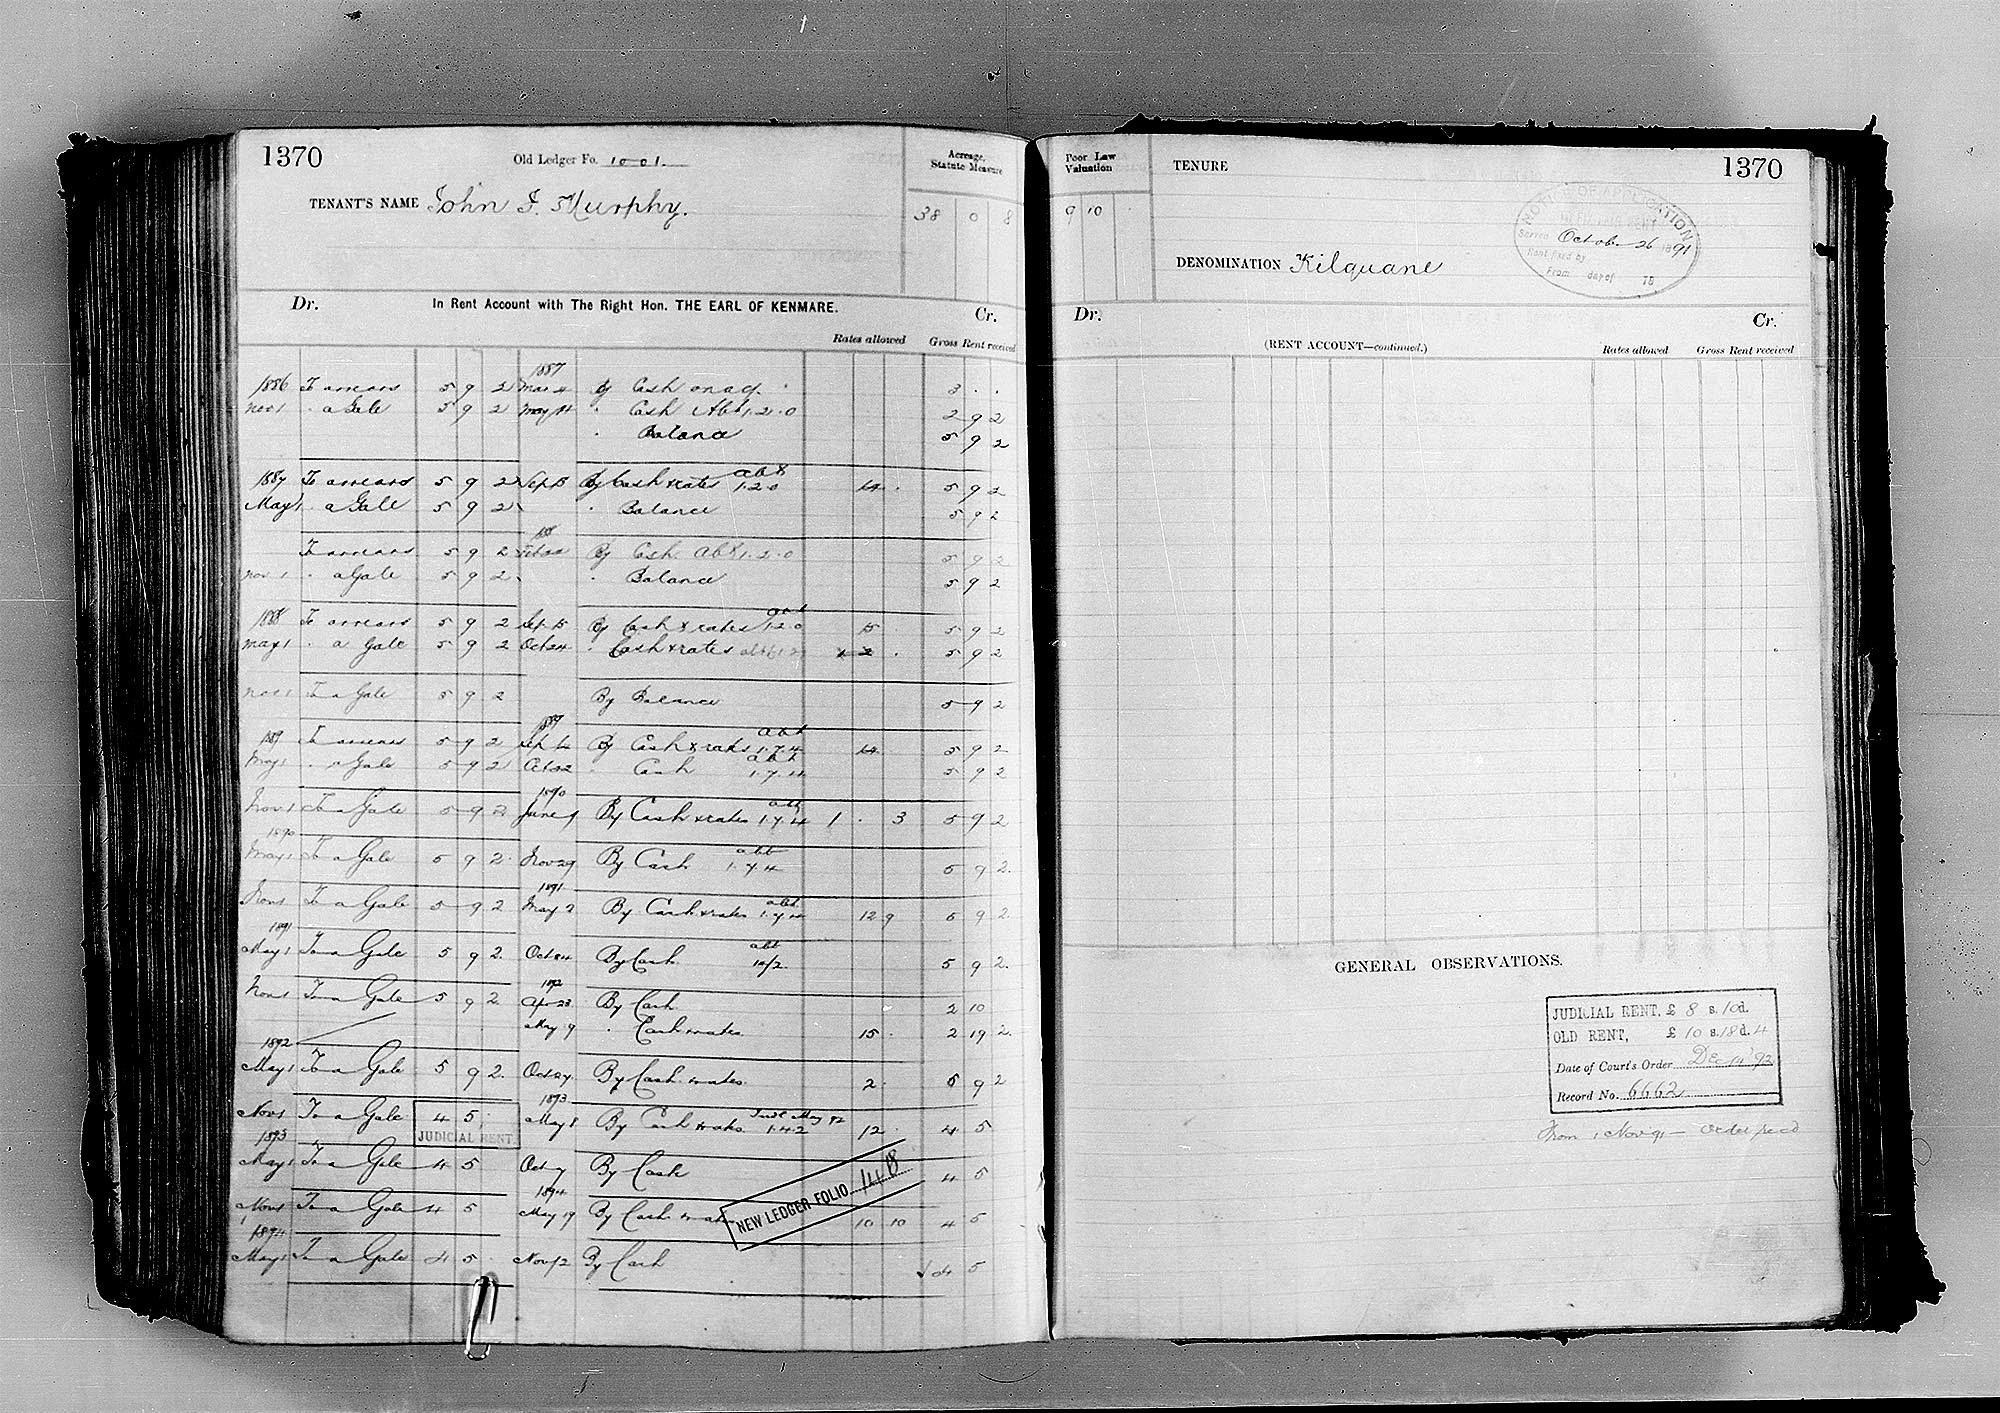 1370
Old Ledger Fo. 1001.
Acreage, Statute Measure
TENANT'S NAME John J. Murphy.
38 0 8
Dr. In Rent Account with The Right Hon. THE EARL OF KENMARE. Cr.
Rates allowed Gross Rent received
1887
1886 To arrears 5 9 2 Mar 4 By Cash on a/c. 3 . .
Nov 1 . a Gale 5 9 2 May 14 " Cash Abt 1.2.0 2 9 2
" Balance 5 9 2
abt
1887 To arrears 5 9 2 Sept 15 By Cash & rates 1.2.0 14 . 5 9 2
May 1 . a Gale 5 9 2 " Balance 5 9 2
188
To arrears 5 9 2 Feb By Cash Abt 1.2.0 5 9 2
Nov 1 . a Gale 5 9 2 " Balance 5 9 2
abt
1888 To arrears 5 9 2 Sept 15 By Cash & rates 1.2.0 15 5 9 2
May 1 . a Gale 5 9 2 Oct 24 " Cash & rates 2 . 5 9 2
Nov 1 To a Gale 5 9 2 By Balance 5 9 2
1889 abt
1889 To arrears 5 9 2 Sept By Cash & rates 1.7.4 14 5 9 2
abt
May 1 . a Gale 5 9 2 Oct 22 " Cash 1.7.4 5 9 2
1890 abt
Nov 1 To a Gale 5 9 2 June 9 By Cash & rates 1.7.4 1 . 3 5 9 2
1890 abt
May 1 To a Gale 5 9 2 Nov 29 By Cash 1.7.4 5 9 2.
1891 abt
Nov 1 To a Gale 5 9 2 May 2 By Cash & rates 1.7.4 12 9 5 9 2
1891 abt
May 1 To a Gale 5 9 2. Oct 24 By Cash 5 9 2.
1892
Nov 1 To a Gale 5 9 2. Apr 23 By Cash 2 10
May 9 " Cash & rates 15 . 2 19 2.
1892
May 1 To a Gale 5 9 2. Oct 27 By Cash & rates 2 . 5 9 2
1893
Nov 1 To a Gale 4 5 May 8 By Cash & rates 1.4.2 May 92 12 . 4 5
JUDICIAL RENT.
1893
May 1 To a Gale 4 5 Oct 7 By Cash 4 5
1894
Nov 1 To a Gale 4 5 May 19 By Cash & rates 10 10 4 5
NEW LEDGER FOLIO 1418
1894
May 1 To a Gale 4 5 Nov 12 By Cash 4 5
Poor Law Valuation
TENURE
1370
9 10
NOTICE OF APPLICATION
Served October 26 1891
Rent fixed by
From day of 18
DENOMINATION Kilquane
Dr. Cr.
(RENT ACCOUNT—continued.) Rates allowed Gross Rent received
GENERAL OBSERVATIONS.
JUDICIAL RENT, £ 8 s. 10 d.
OLD RENT, £ 10 s. 18 d. 4
Date of Court's Order Dec 14 '92
Record No. 6662
From 1 Nov 91 — Order recd